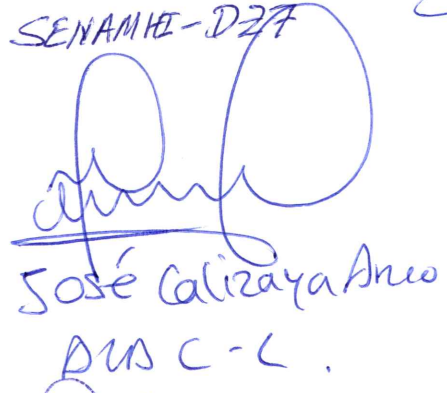 SENAMHI-DZ7
José Calizaya Anco
C-C.